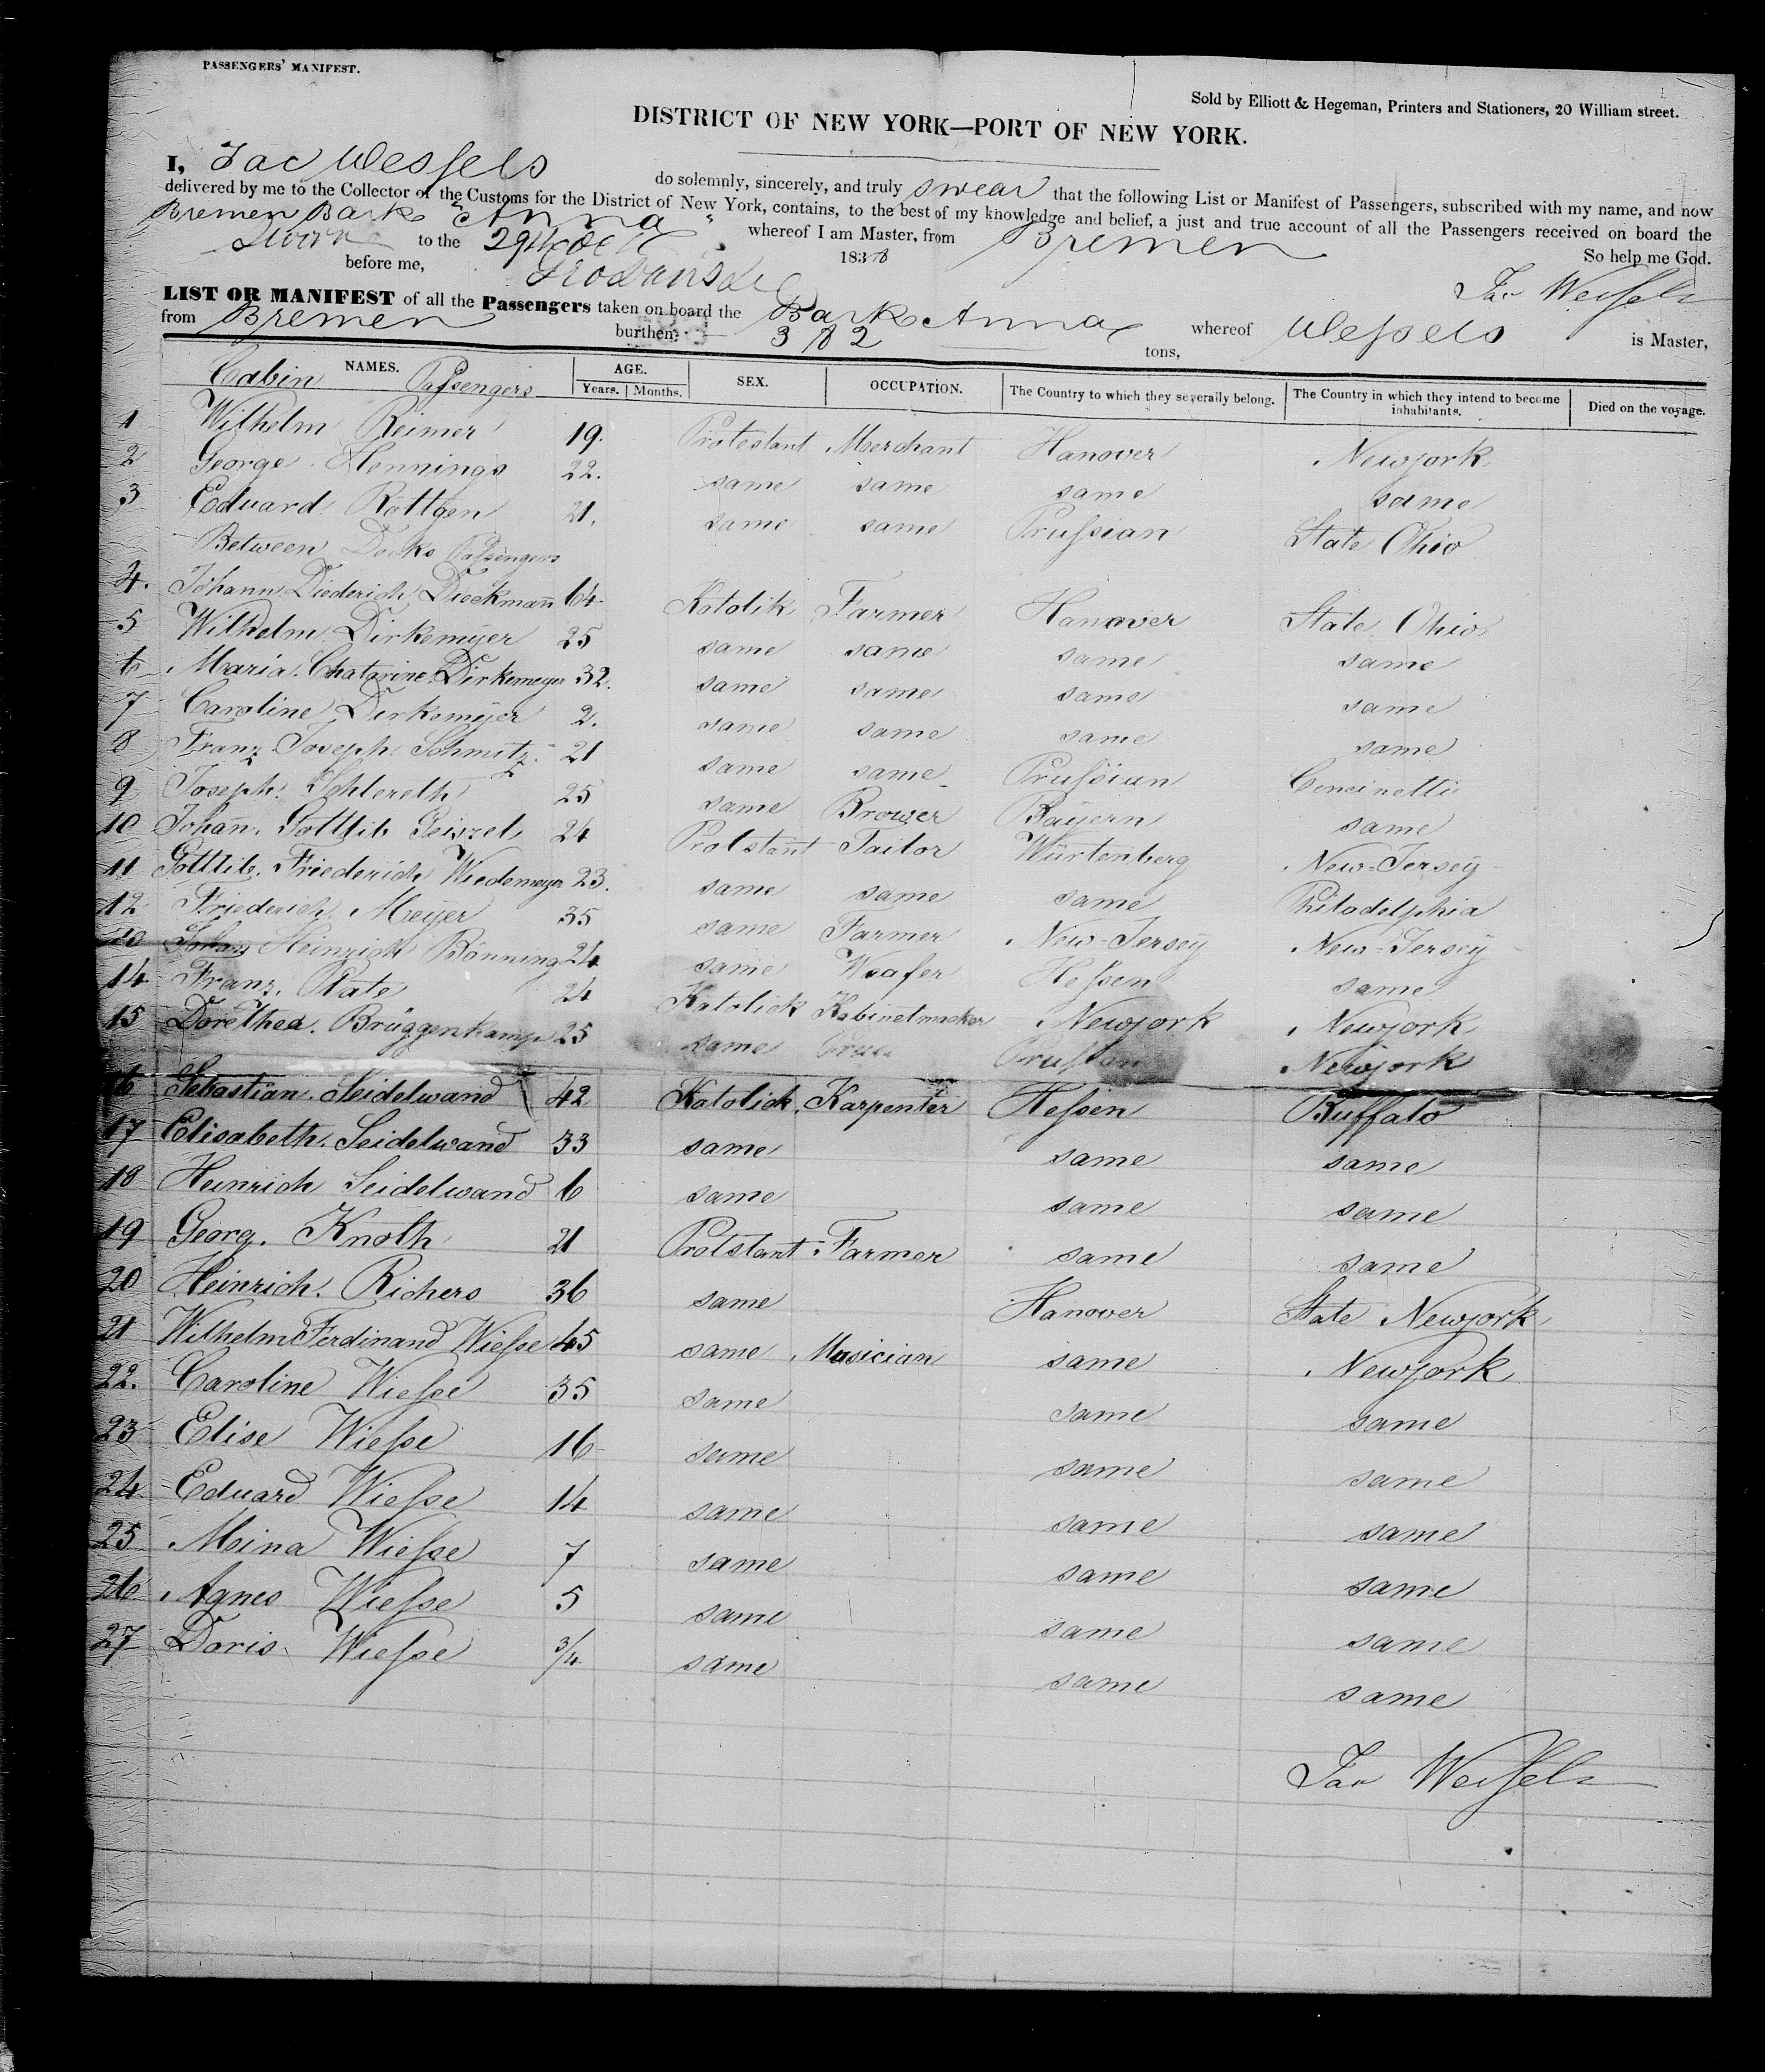 PASSENGERS' MANIFEST.
Sold by Elliott & Hegeman, Printers and Stationers, 20 William street.
DISTRICT OF NEW YORK—PORT OF NEW YORK.
I, Jac Wessels do solemnly, sincerely, and truly swear that the following List or Manifest of Passengers, subscribed with my name, and now
delivered by me to the Collector of the Customs for the District of New York, contains, to the best of my knowledge and belief, a just and true account of all the Passengers received on board the
Bremen Bark "Anna" whereof I am Master, from Bremen
Sworn to the 29th 1838 So help me God.
before me, Jac Wessels
LIST OR MANIFEST of all the Passengers taken on board the Bark Anna whereof Wessels is Master,
from Bremen burthen, 382 tons,
NAMES. AGE. Years. Months. SEX. OCCUPATION. The Country to which they severally belong. The Country in which they intend to become inhabitants. Died on the voyage.
Cabin Passengers
1 Wilhelm Reimer 19. Protestant Merchant Hanover Newyork
2 George Hennings 22. same same same same
3 Eduard Röttgen 21. same same Prussian State Ohio
Between Decks Passengers
4. Johann Diederich Dieckmann 64 Katolik Farmer Hanover State Ohio
5 Wilhelm Dirkemeyer 25 same same same same
6 Maria Chatarine Dirkemeyer 32. same same same same
7 Caroline Dirkemeyer 2. same same same same
8 Franz Joseph Schmitz 21 same same Prussian Cencinetti
9 Joseph Schlereth 25 same Brower Bayern same
10 Johann Gottlib 24 Protstant Tailor Würtenberg New-Jersey
11 Gottlib Friederich Wiedemeyer 23. same same same Philadelphia
12 Friederich Meyer 35 same Farmer New-Jersey New-Jersey
13 Johan Heinrich Bönning 24 same Weafer Hessen same
14 Franz Plate 24 Katolick Kabinetmacker Newyork Newyork
15 Dorethea Brüggenkamp 25 same Newyork
16 Sebastian Seidelwand 42 Katolick Karpenter Hessen Buffalo
17 Elisabeth Seidelwand 33 same same same
18 Heinrich Seidelwand 6 same same same
19 Georg. Knoth 21 Protstant Farmer same same
20 Heinrich Richers 36 same Hanover State Newyork
21 Wilhelm Ferdinand Wiesse 45 same Musician same Newyork
22. Caroline Wiesse 35 same same same
23 Elise Wiesse 16 same same same
24 Eduard Wiesse 14 same same same
25 Meina Wiesse 7 same same same
26 Agnes Wiesse 5 same same same
27 Doris Wiesse 3/4 same same same
Jac Wessels